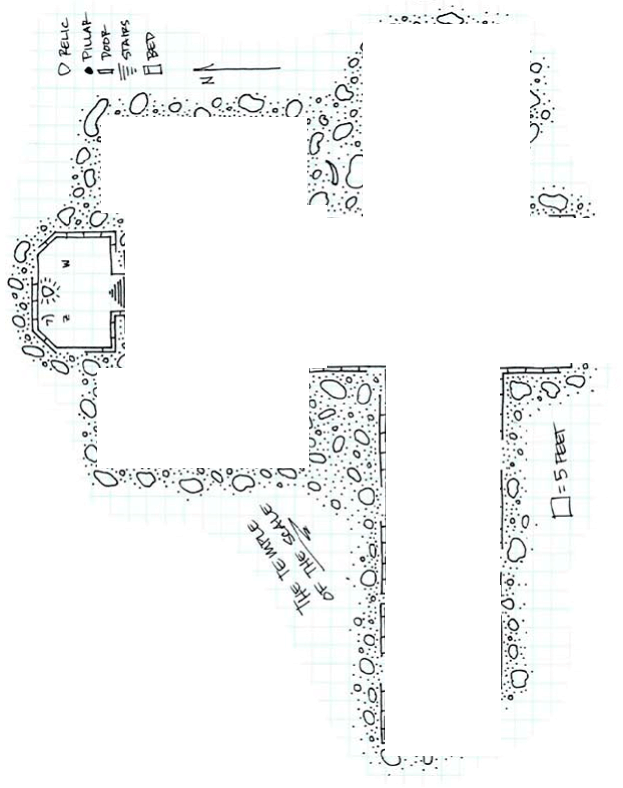 RELIC
PILLAR
DOOR
STAIRS
BED
N
THE TEMPLE
OF THE SCALE
= 5 FEET